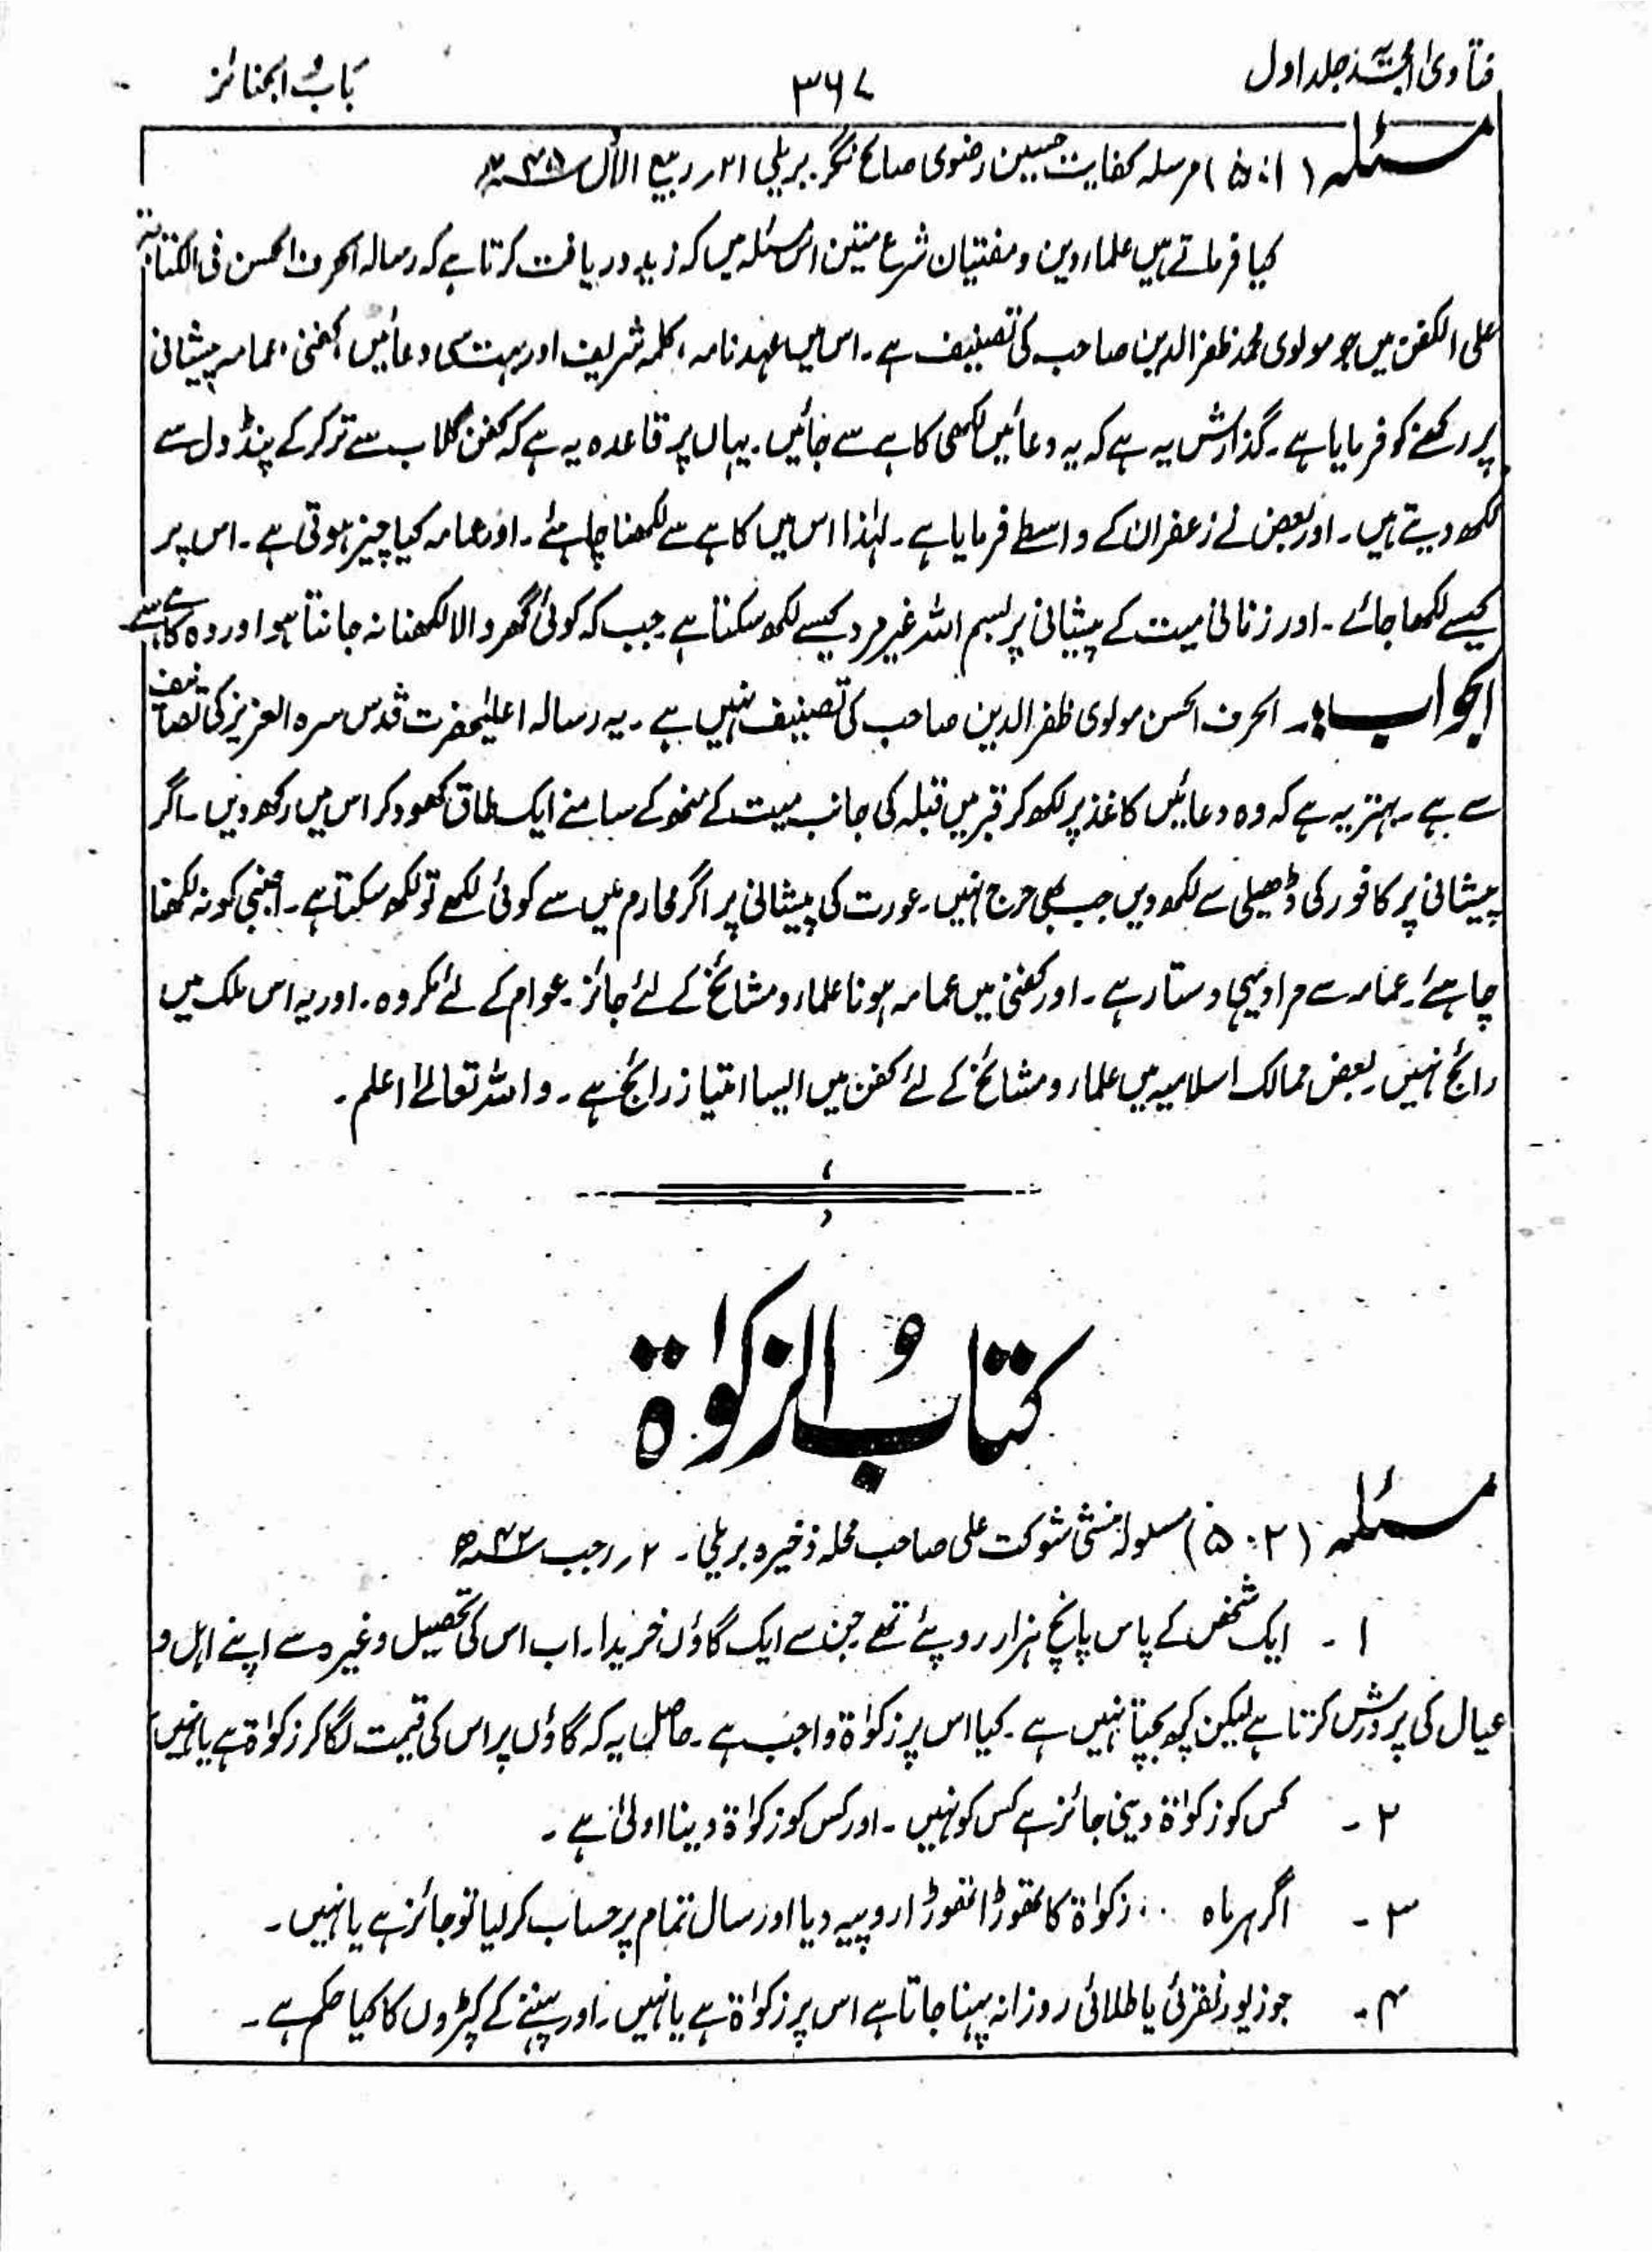 فتاویٰ امجدیہ جلد اول
۳۶۷
باب الجنائز
مسئلہ (۵۰۱) مرسلہ کفایت حسین رضوی صالح نگر بریلی ۲۱ ربیع الاول
کیا فرماتے ہیں علماء دین و مفتیان شرع متین اس مسئلہ میں کہ زید دریافت کرتا ہے کہ رسالہ الحرف الحسن فی الکتابۃ
علی الکفن میں جو مولوی محمد ظفر الدین صاحب کی تصنیف ہے۔ اس میں عہد نامہ، کلمہ شریف اور بہت سی دعائیں، کفنی، عمامہ پیشانی
پر رکھنے کو فرمایا ہے۔ گذارش یہ ہے کہ یہ دعائیں لکھی کاہے سے جائیں۔ یہاں پر قاعدہ یہ ہے کہ کفن گلاب سے تر کر کے پنڈول سے
لکھ دیتے ہیں۔ اور بعض نے زعفران کے واسطے فرمایا ہے۔ لہٰذا اس میں کاہے سے لکھنا چاہئے۔ اور عمامہ کیا چیز ہوتی ہے۔ اس پر
کیسے لکھا جائے۔ اور زنانی میت کے پیشانی پر بسم اللہ غیر مرد کیسے لکھ سکتا ہے جب کہ کوئی گھر والا لکھنا نہ جانتا ہو اور وہ کاہے سے
الجواب:۔ الحرف الحسن مولوی ظفر الدین صاحب کی تصنیف نہیں ہے۔ یہ رسالہ اعلیٰحضرت قدس سرہ العزیز کی تصانیف
سے ہے۔ بہتر یہ ہے کہ وہ دعائیں کاغذ پر لکھ کر قبر میں قبلہ کی جانب میت کے منھ کے سامنے ایک طاق کھود کر اس میں رکھ دیں۔ اگر
پیشانی پر کافور کی ڈھیلی سے لکھ دیں جب بھی حرج نہیں۔ عورت کی پیشانی پر اگر محارم میں سے کوئی لکھے تو لکھ سکتا ہے۔ اجنبی کو نہ لکھنا
چاہئے۔ عمامہ سے مراد یہی دستار ہے۔ اور کفنی میں عمامہ ہونا علماء و مشائخ کے لئے جائز۔ عوام کے لئے مکروہ۔ اور یہ اس ملک میں
رائج نہیں۔ بعض ممالک اسلامیہ میں علماء و مشائخ کے لئے کفن میں ایسا امتیاز رائج ہے۔ واللہ تعالےٰ اعلم۔
کتابُ الزکوٰۃ
مسئلہ (۵۰۲) مسلولہ منشی شوکت علی صاحب محلہ ذخیرہ بریلی۔ ۲ رجب ۴۲ھ
۱۔ ایک شخص کے پاس پانچ ہزار روپئے تھے جن سے ایک گاؤں خریدا۔ اب اس کی تحصیل وغیرہ سے اپنے اہل و
عیال کی پرورش کرتا ہے لیکن کچھ بچتا نہیں ہے۔ کیا اس پر زکوٰۃ واجب ہے۔ حاصل یہ کہ گاؤں پر اس کی قیمت لگا کر زکوٰۃ ہے یا نہیں
۲۔ کس کو زکوٰۃ دینی جائز ہے کس کو نہیں۔ اور کس کو زکوٰۃ دینا اولیٰ ہے۔
۳۔ اگر ہر ماہ زکوٰۃ کا تھوڑا تھوڑا روپیہ دیا اور سال تمام پر حساب کر لیا تو جائز ہے یا نہیں۔
۴۔ جو زیور نقرئی یا طلائی روزانہ پہنا جاتا ہے اس پر زکوٰۃ ہے یا نہیں۔ اور پہننے کے کپڑوں کا کیا حکم ہے۔